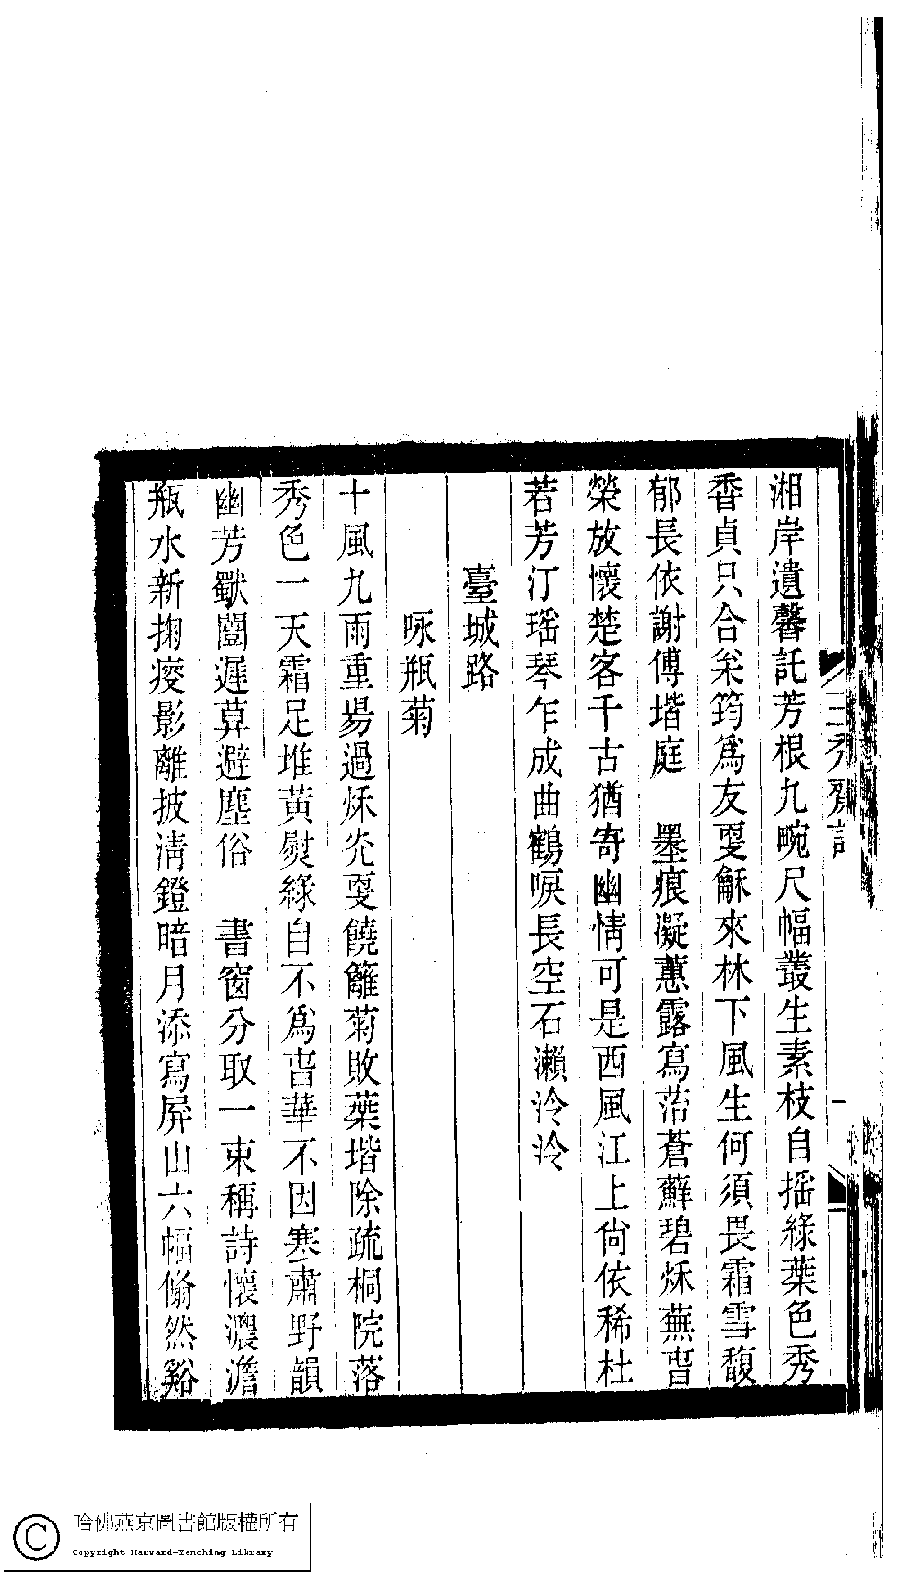 湘岸遺馨託芳根九畹尺幅叢生素枝自搖綠葉色秀
香貞只合枀筠爲友叓龢來林下風生何須畏霜雪馥
郁長依謝傅堦庭　墨痕凝蕙露寫葯蒼蘚碧烁蕪旹
榮放懷楚客千古猶寄幽情可是西風江上尙依稀杜
若芳汀瑶琴乍成曲鶴唳長空石瀨泠泠
臺城路
咏瓶菊
十風九雨重昜過烁炗叓饒籬菊敗葉堦除疏桐院落
秀色一天霜足堆黃熨綠自不爲旹華不因寒肅野韻
幽芳歜闓遲萛避塵俗　書窗分取一束稱詩懷濃澹
瓶水新掬痠影離披淸鐙暗月添寫屛山六幅翛然谿
三秀齋詞
一
哈佛燕京圖書館版權所有
Copyright Harvard-Yenching Library